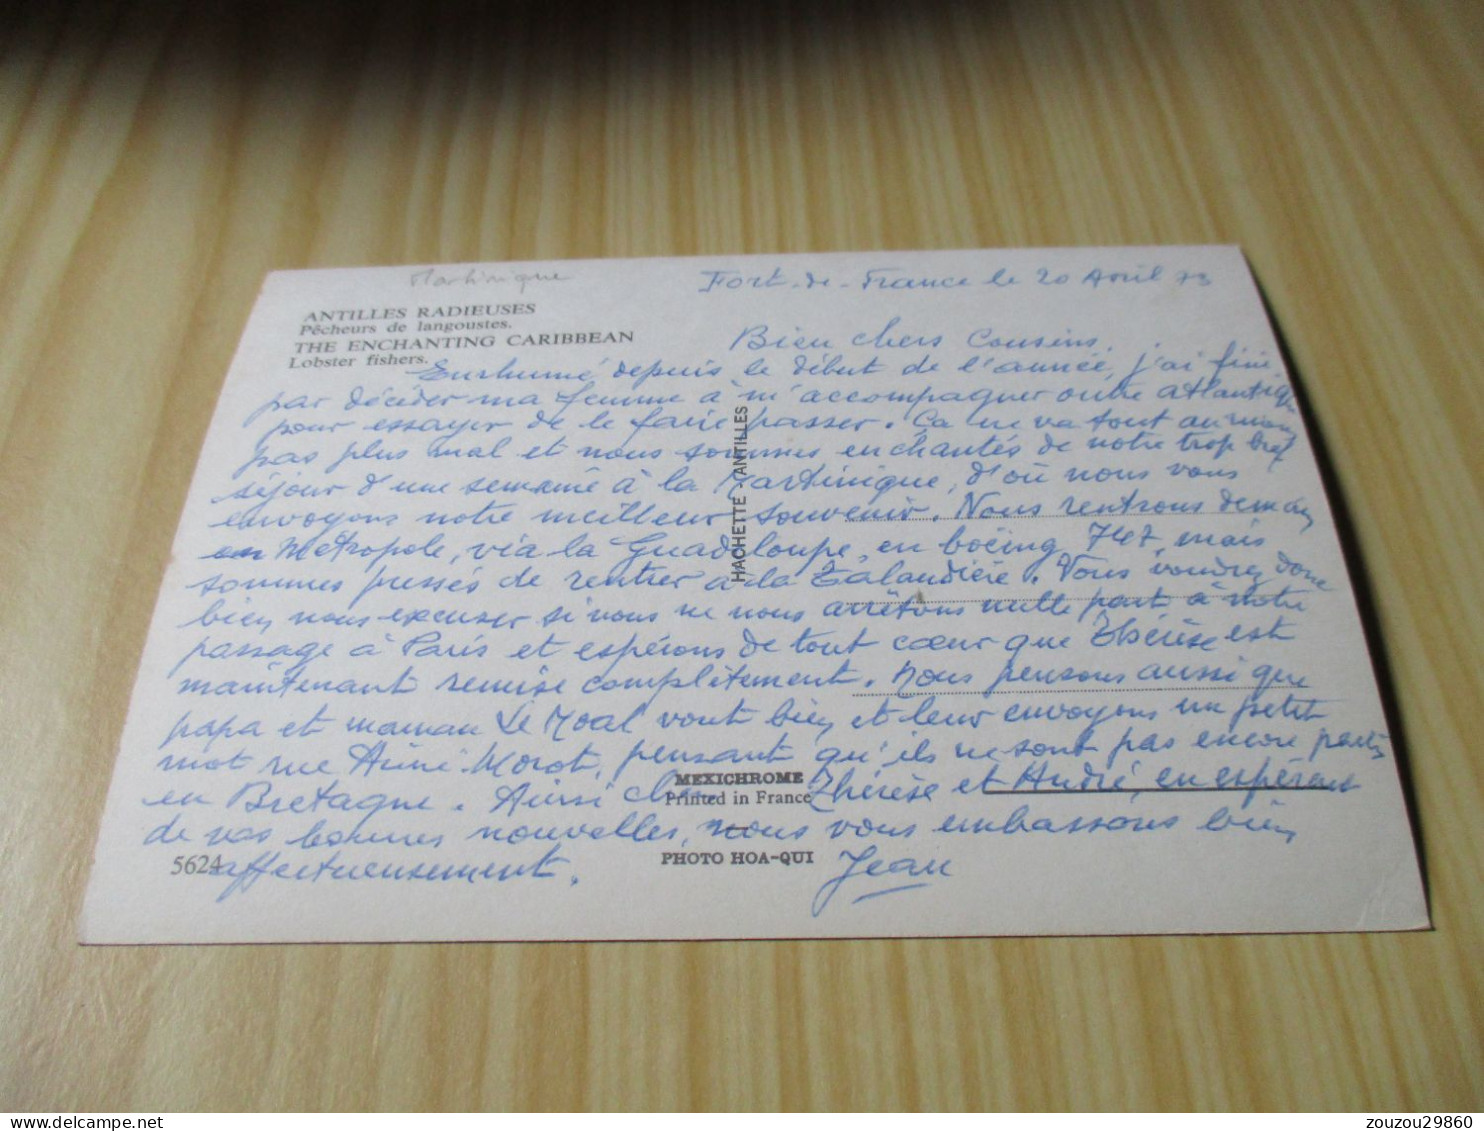 Martinique
Fort-de-France le 20 Avril 73
ANTILLES RADIEUSES
Pêcheurs de langoustes.
THE ENCHANTING CARIBBEAN
Lobster fishers.
Bien chers Cousins,
Enrhumé depuis le début de l'année, j'ai fini
par décider ma femme à m'accompagner outre atlantique
pour essayer de le faire passer. Ça ne va tout au moins
pas plus mal et nous sommes enchantés de notre trop bref
séjour d'une semaine à la Martinique, d'où nous vous
envoyons notre meilleur souvenir. Nous rentrons demain
en Métropole, via la Guadeloupe, en boeing 747, mais
sommes pressés de rentrer à la Talaudière. Vous voudrez donc
bien nous excuser si nous ne nous arrêtons nulle part à notre
passage à Paris et espérons de tout cœur que Thérèse est
maintenant remise complètement. Nous pensons aussi que
papa et maman Le Moal vont bien et leur envoyons un petit
mot rue Aimé Morot, pensant qu'ils ne sont pas encore partis
en Bretagne. Ainsi chers Thérèse et André, en espérant
de vos bonnes nouvelles, nous vous embassons bien
affectueusement.
Jean
HACHETTE - ANTILLES
MEXICHROME
Printed in France
5624
PHOTO HOA-QUI
zouzou29860